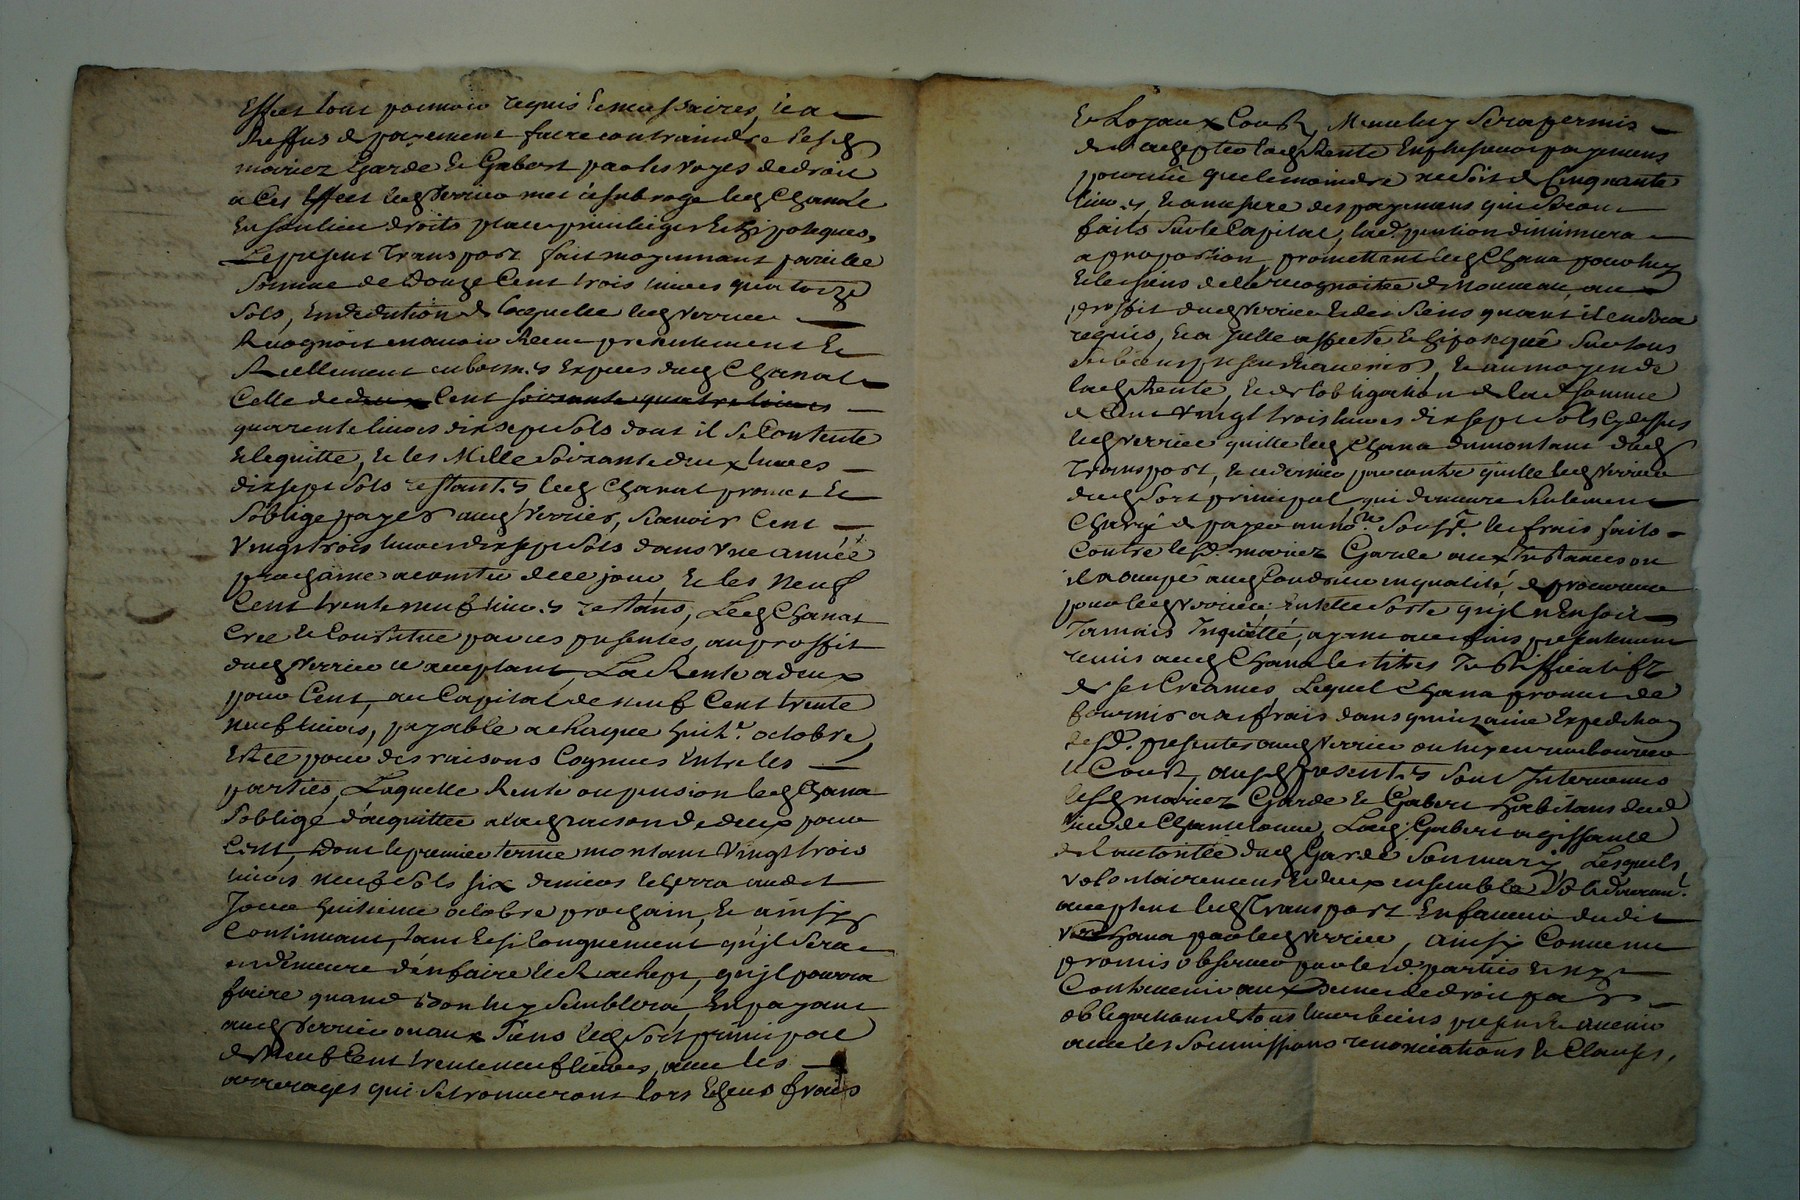 Effect tout pouvoir requis & necessaires, & a
Reffus de payement faire contraindre lesd
mariez Garde & Gabert par les voyes de droit
a Cet Effect led Verrier met & subroge led Chanat
En son lieu droits place privileges & hipoteques,
Le present transport fait moyennant pareille
Somme de Douze Cent trois livres quatorze
Sols, En dedution de laquelle led Verrier
Recognoit en avoir Receu presentement &
Reellement en bonnes Especes dud Chanat
Celle de deux Cent soixante quatre livres
quarente livres dix sept Sols dont il Se Contente
& le quitte, & les Mille Soixante deux livres
dix sept Sols restantes led Chanat promet &
S'oblige payer aud Verrier, Scavoir Cent
Vingt trois livres dix sept Sols dans Une année
prochaine a comter de ce jour, & les Neuf
Cent trente neuf livres restans, Led Chanat
Crée & Constitue par ces presentes, au proffit
dud Verrier ce acceptant, La Rente a deux
pour Cent, au Capital de neuf Cent trente
neuf livres, payable a chaque huit.e octobre,
Et ce pour des raisons Cognues Entre les
parties, Laquelle Rente ou pension led Chanat
S'oblige d'acquitter a lad raison de deux pour
Cent, Dont le premier terme montant Vingt trois
livres neuf Sols six deniers Echerra audit
Jour huitieme octobre prochain, & ainsy
Continuant, tant & si longuement qu'jl Sera
en demeure d'en faire le Rachept, qu'jl pourra
faire quand bon luy Semblera, En payant
aud Verrier ou aux Siens led Sort principal
de Neuf Cent trente neuf livres, avec les
arrerages qui Se trouveront lors Echeus frais
& Loyaux Coust, Mme luy Sera permis
de rachepter lad Rente En plusieurs payemens
pourveu que le moindre ne Soit de Cinquante
livres, & a mesure des payemens qui Seront
faits Sur le Capital, lad. pention diminuera
a proportion, promettant led Chanat pour luy
& les siens de la recognoitre de Nouveau, au
proffit dud Verrier & des Siens quant il en Sera
requis, & a Jcelle affecte & hipotequé Sur tous
Ses biens presens & avenirs, & au moyen de
lad Rente, & de l'obligation de lad Somme
de Cent vingt trois livres dix sept Sols Cy dessus
led Verrier quitte led Chanat du montant dud
transport, & ce dernier par contre quitte led Verrier
dud Sort principal, qui demeure Seulement
Chargé de payer au no.re Sous.é les frais faits
Contre lesd. mariez Garde aux Instances ou
il a occupé aud en qualité de procureur
pour led Verrier En telle Sorte qu'jl n'En Soit
Jamais Inquietté, ayant aux fins presentement
remis aud Chanat les titres Justifficatifz
de ses Creances, Lequel Chanat promet de
fournir a ses frais dans quinzaine Expedition
desd. presentes aud Verrier ou luy en rembourcer
le Coust, ausd presentes Sont Intervenus
lesd mariez Garde & Gabert habitans dud
lieu de Chantelouve, Lad Gabert agissante
de l'autorité dud Garde Son mary, Lesquels
volontairement & deux ensemble
acceptent led transport En faveur dudit
Chanat par led Verrier, ainsy Convenu
promis observer par lesd. parties & n'y
Contrevenir aux peines de droit par
obligation de tous leurs biens presens & avenir
avec les Soumissions renonciations & Clauses,